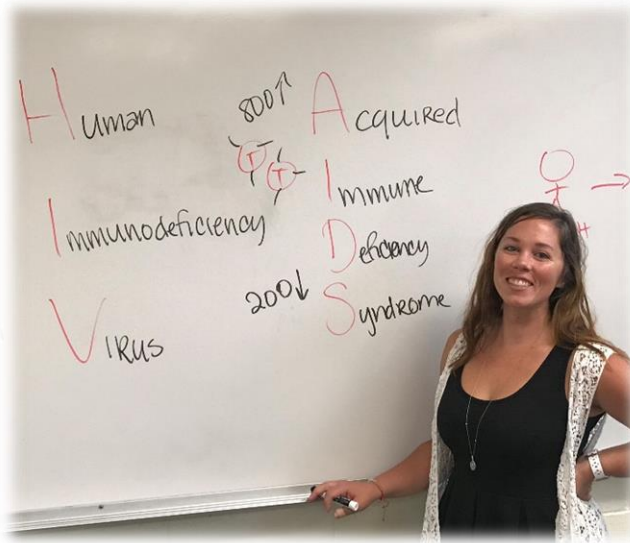 Human
Immunodeficiency
Virus
800↑
T T
200↓
Acquired
Immune
Deficiency
Syndrome
+